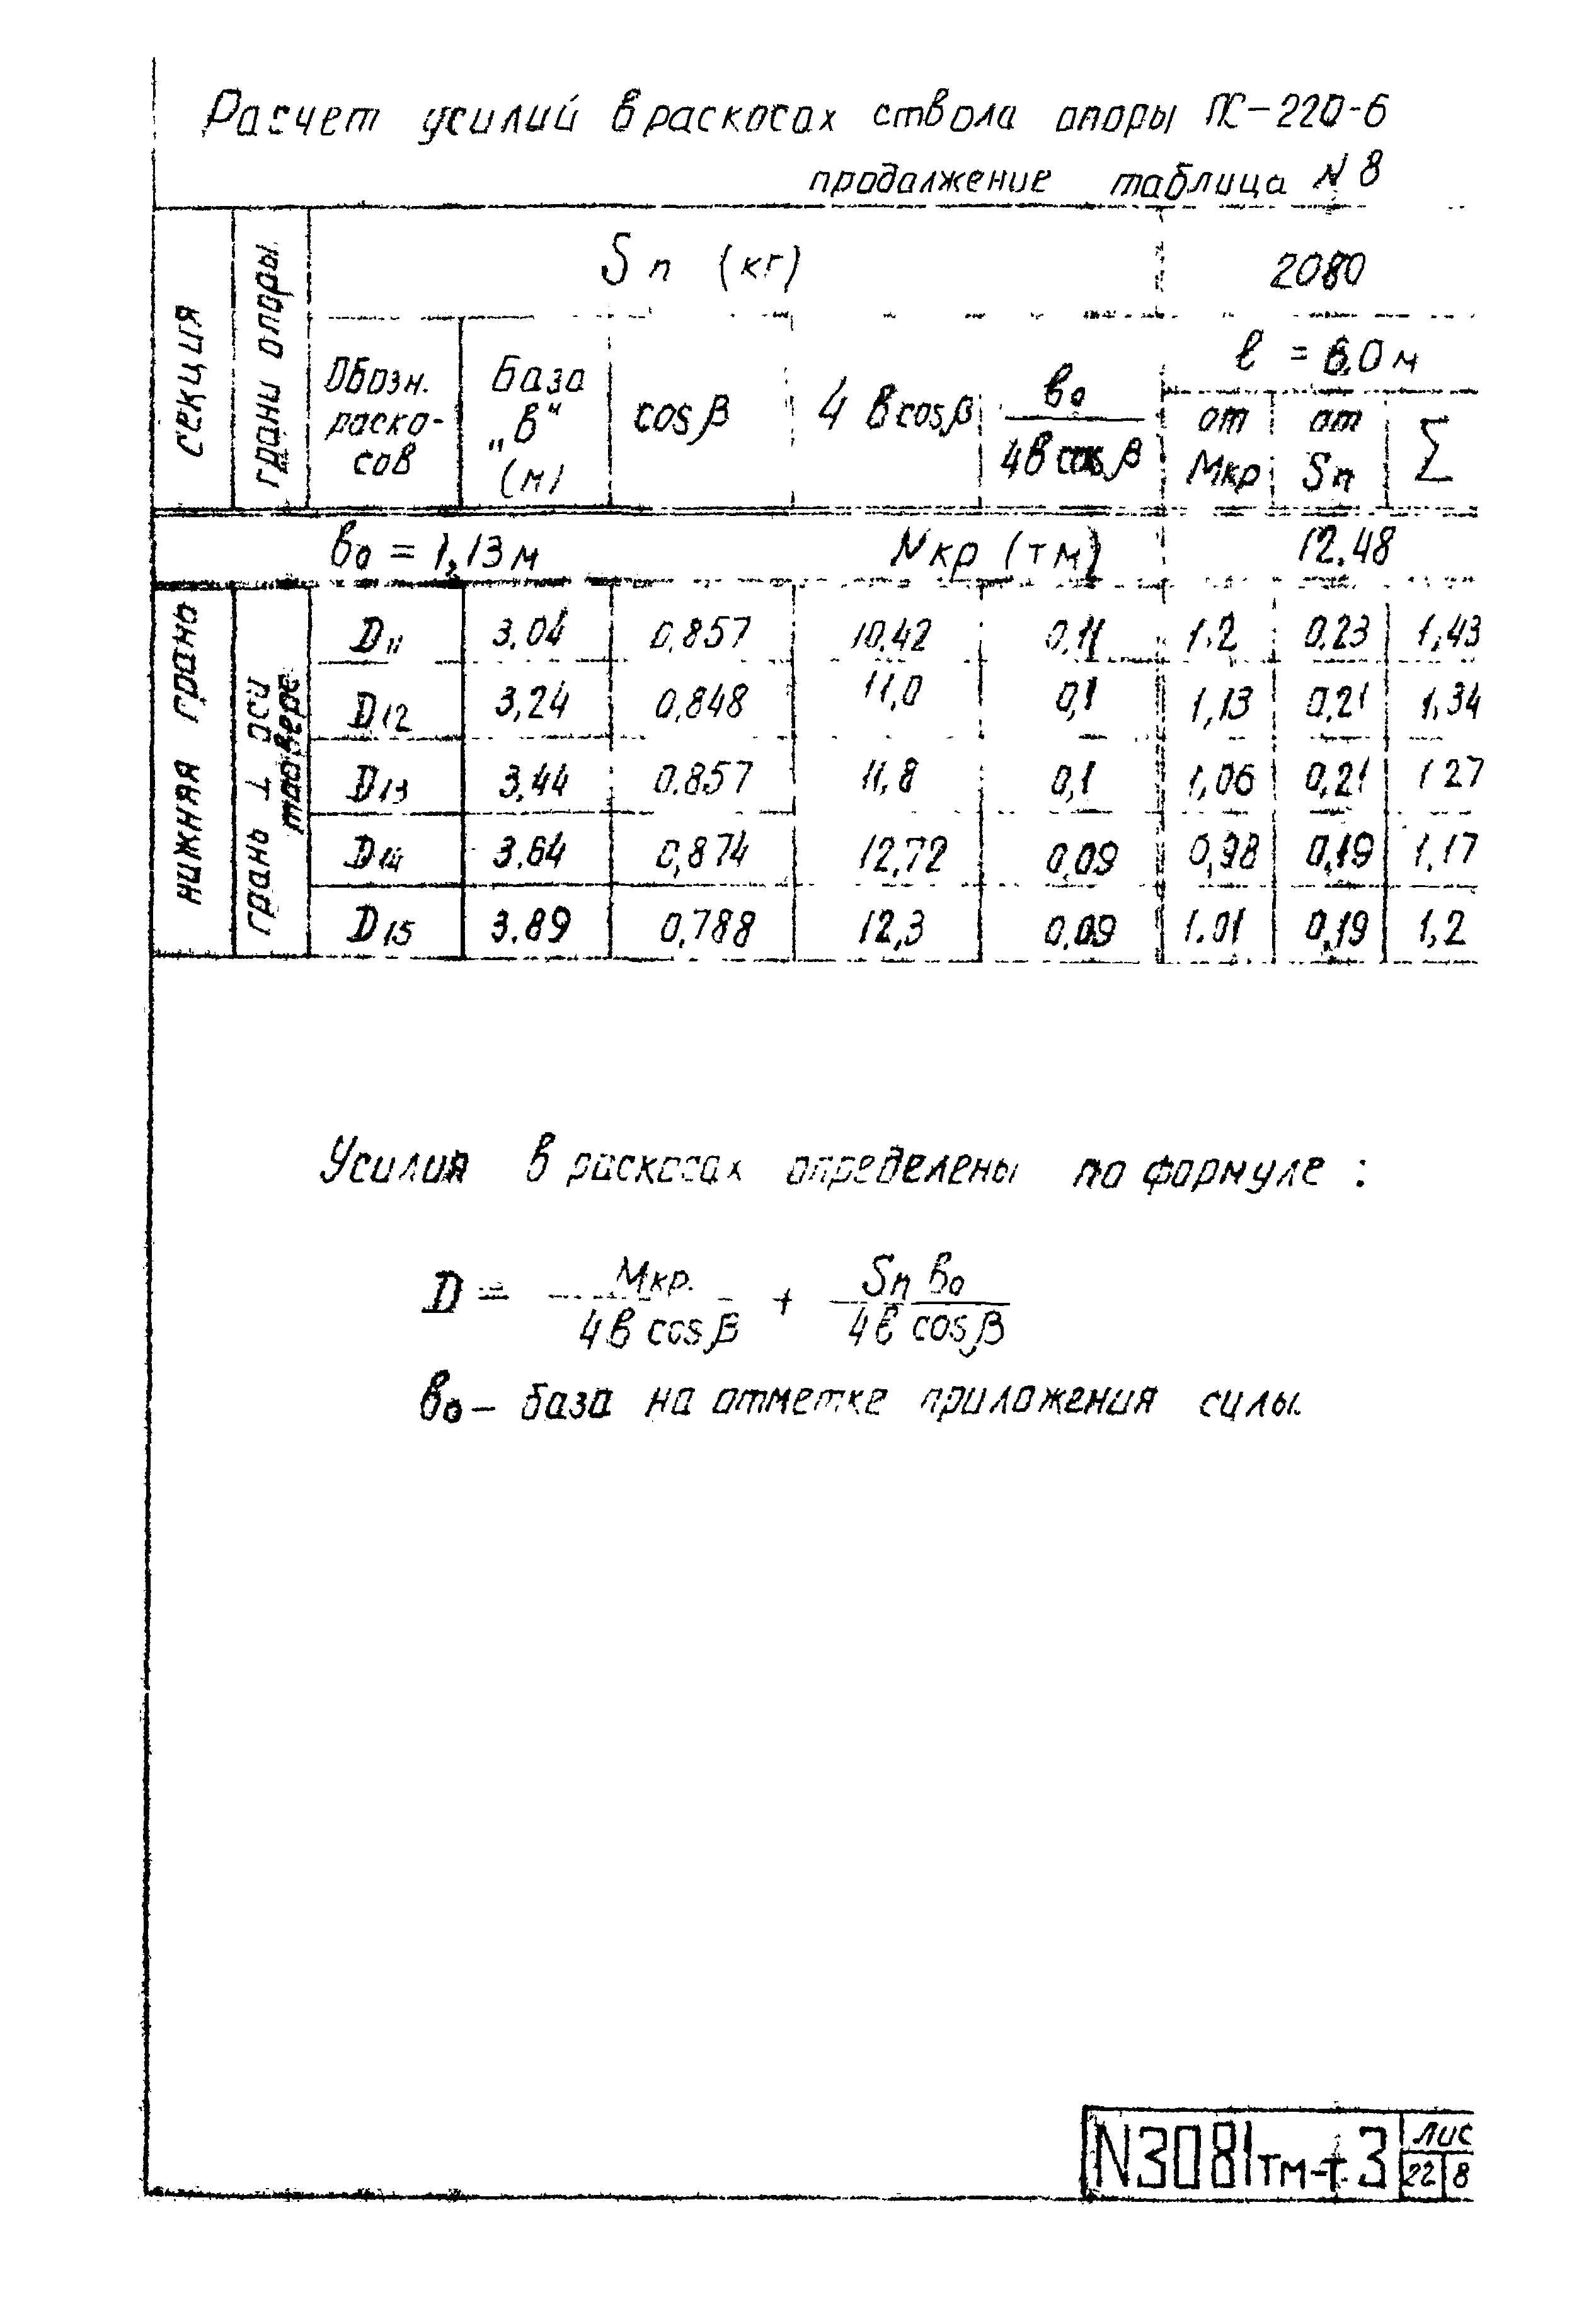 Расчет усилий в раскосах ствола опоры ПС-220-6
продолжение таблица N 8
секция
грани опоры
Sп (кг)
2080
Обозн. раско-сов
База „в“ (м)
cos β
4 в cos β
в₀ / 4 в cos β
ℓ = 6,0 м
от Мкр
от Sп
Σ
в₀ = 1,13 м
Nкр (тм)
12.48
нижняя грань
грань ⊥ оси траверс
D11 3.04 0,857 10.42 0,11 1.2 0.23 1,43
D12 3,24 0,848 11,0 0,1 1,13 0,21 1,34
D13 3,44 0.857 11,8 0,1 1,06 0,21 1 27
D14 3.64 0,874 12,72 0,09 0,98 0,19 1,17
D15 3.89 0,788 12,3 0,09 1.01 0,19 1,2
Усилия в раскосах определены по формуле :
D = Мкр. / 4 в cos β + Sп в₀ / 4 в cos β
в₀ – база на отметке приложения силы.
N3081тм-т.3
лис
22 8